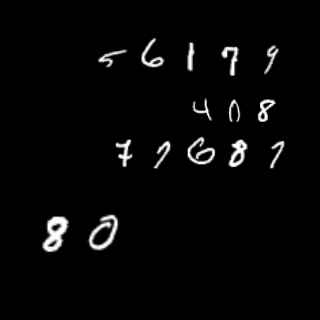 56179
408
77687
80